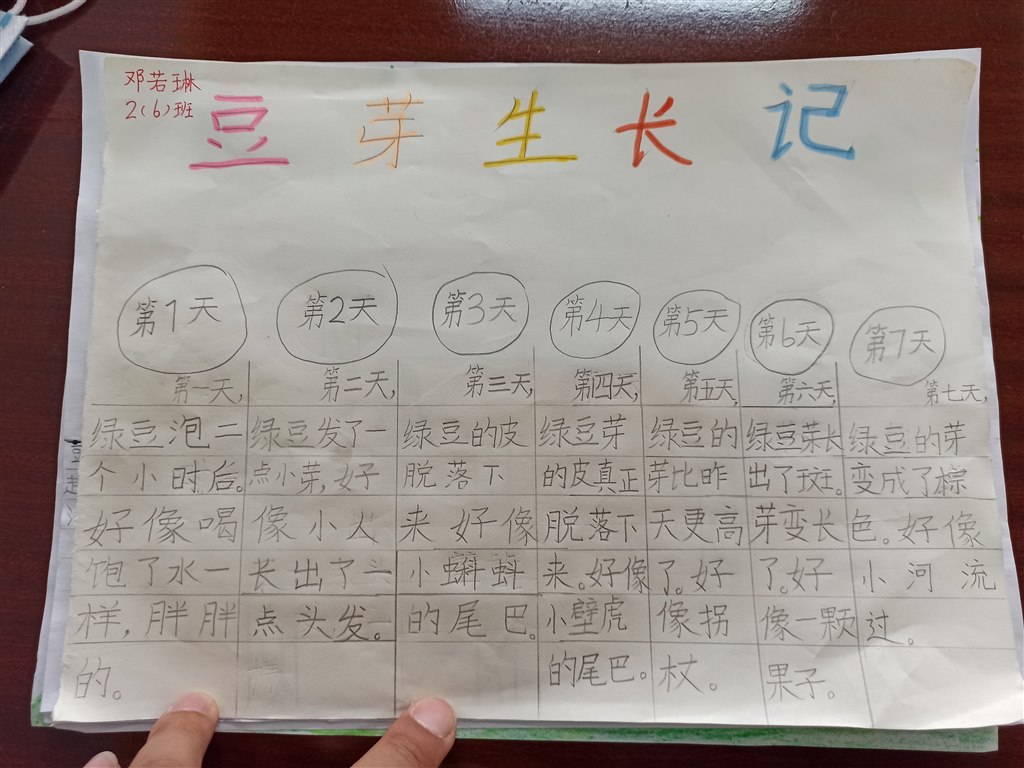 邓若琳
2(6)班
豆芽生长记
第1天
第一天,
绿豆泡二
个小时后。
好像喝
饱了水一
样,胖胖
的。
第2天
第二天,
绿豆发了一
点小芽,好
像小人
长出了一
点头发。
第3天
第三天,
绿豆的皮
脱落下
来好像
小蝌蚪
的尾巴。
第4天
第四天,
绿豆芽
的皮真正
脱落下
来。好像
小壁虎
的尾巴。
第5天
第五天,
绿豆的
芽比昨
天更高
了。好
像拐
杖。
第6天
第六天,
绿豆芽长
出了斑。
芽变长
了。好
像一颗
果子。
第7天
第七天,
绿豆的芽
变成了棕
色。好像
小河流
过。